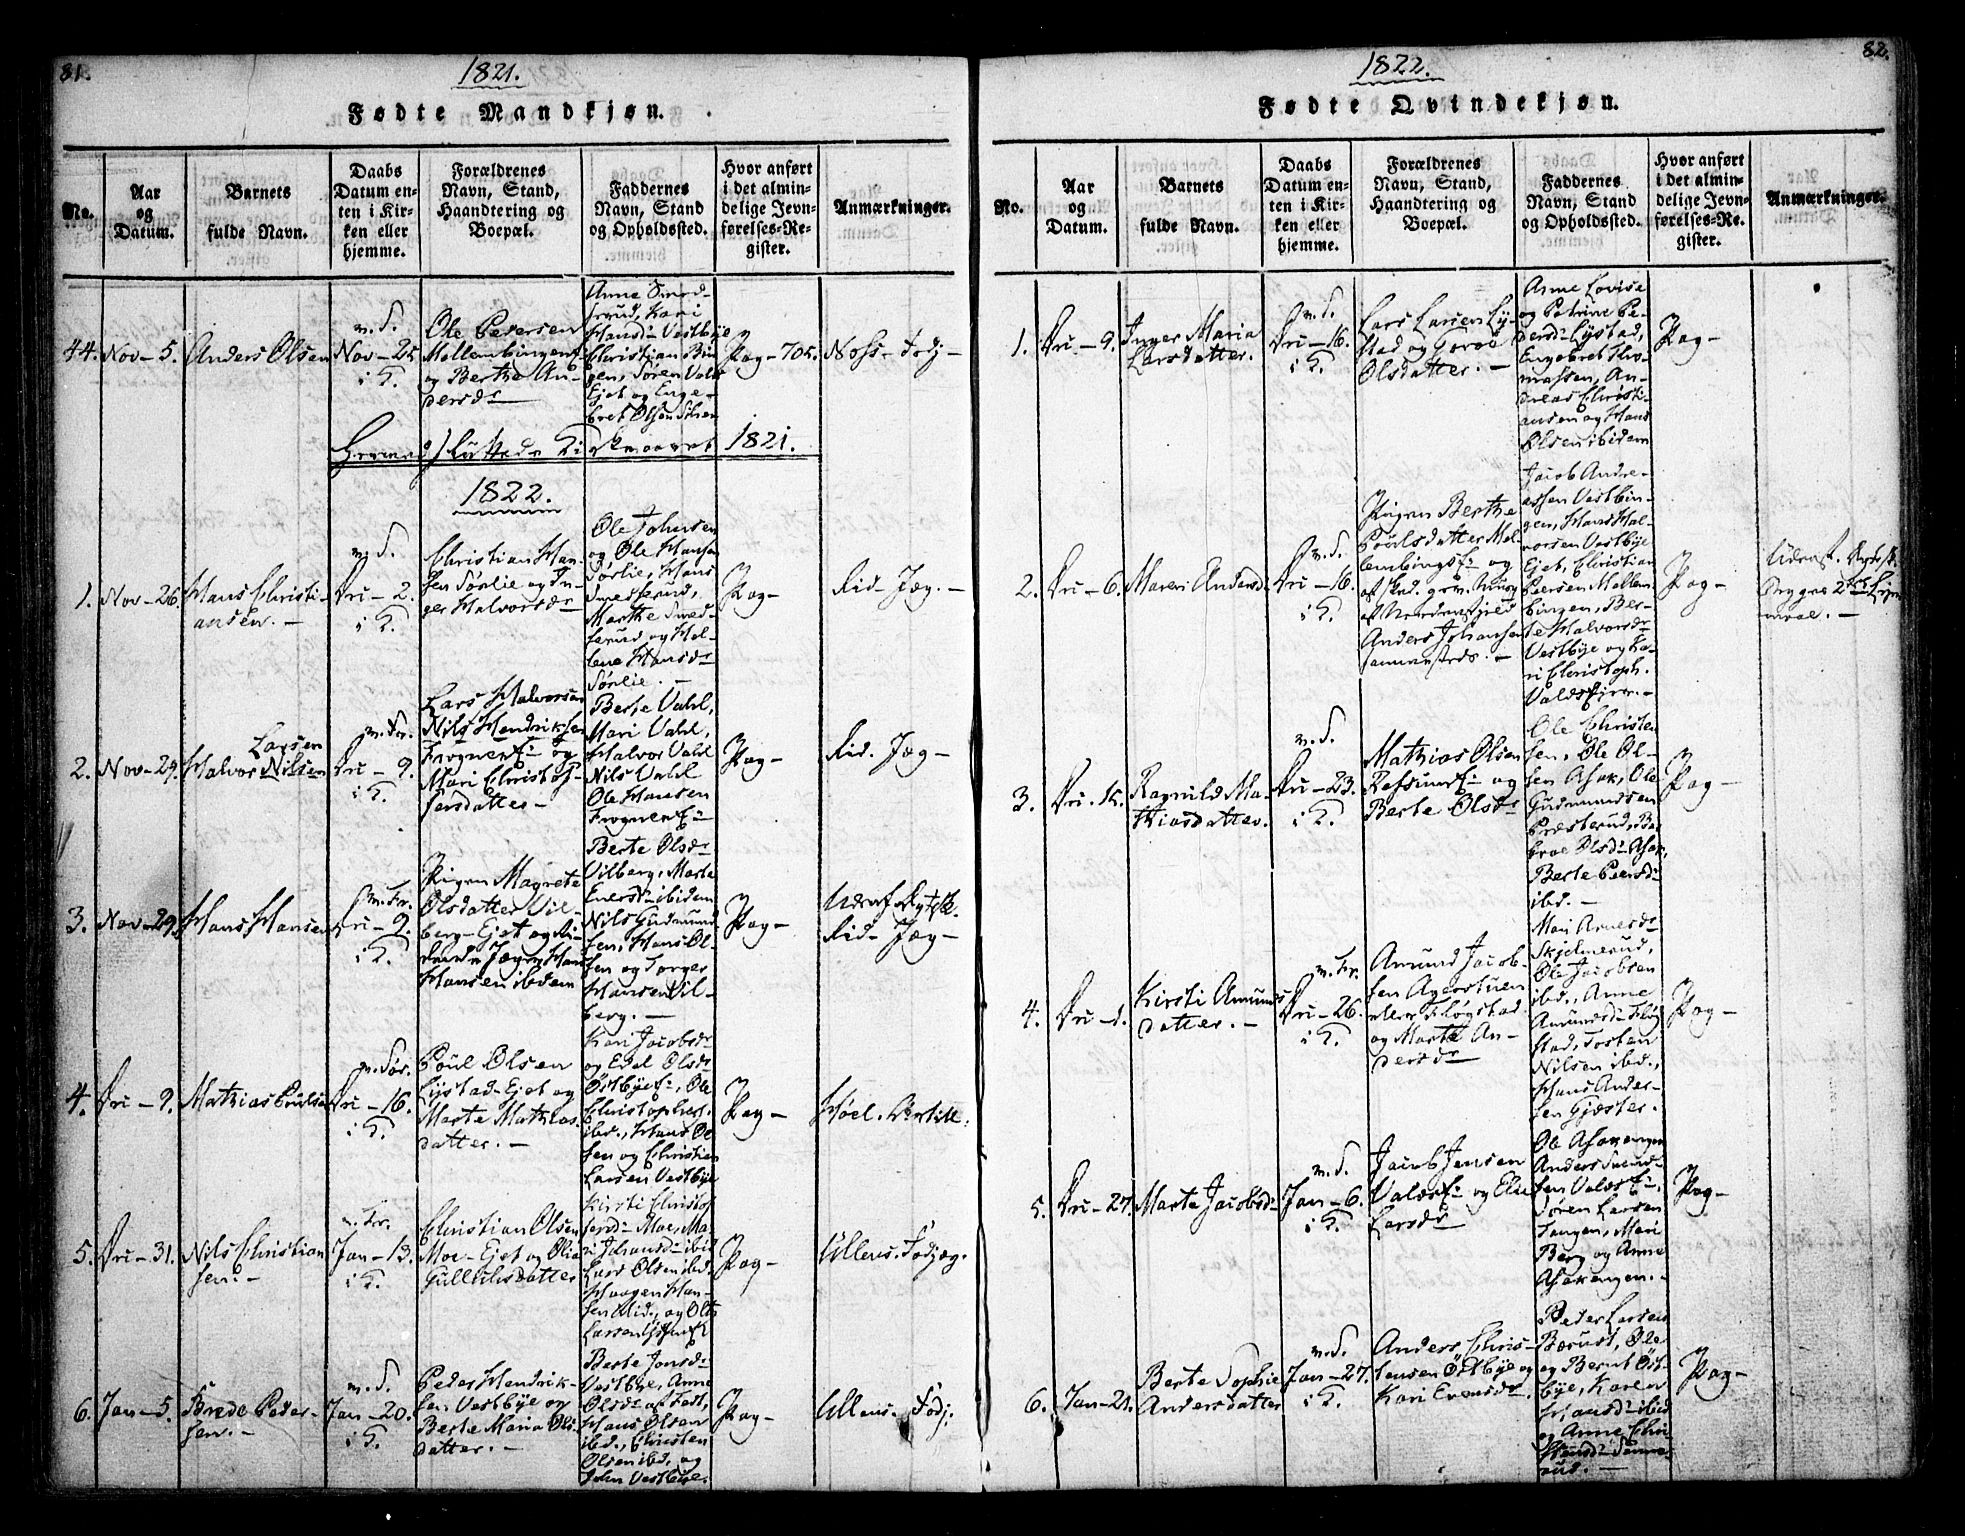 81.
1821.
Fødte Mandkjøn.
No.
Aar
og
Datum.
Barnets
fulde Navn.
Daabs
Datum en-
ten i Kir-
ken eller
hjemme.
Forældrenes
Navn, Stand,
Haandtering og
Boepæl.
Faddernes
Navn, Stand
og Opholdssted.
Hvor anført
i det almin-
delige Jevn-
førelses-Re-
gister.
Anmærkninger.
44. Nov - 5.
Anders Olsen
Nov - 25
i K.
Ole Pedersen
Mellembingen
og Berthe An-
dersdr
Anne Smed-
serud, Kari
Hansdr Vestbye
Christian Bin
gen, Søren Vahl
Ejet og Enge-
bret Olsen
Pag - 705.
1821.
1822.
1. Nov - 26.
Hans Christi-
ansen. -
Dri - 2.
i K.
Christian Han-
sen Sørlie og In-
ger Halvorsdr
Ole Johnsen
og Ole Hansen
Sørlie, Hans
Smedserud,
Marthe Smed-
serud og Hel-
lene Hansdr
Sørlie. -
Pag -
Rid. Jæg. -
2. Nov - 29.
Larsen
Halvor Nilsen
Dri - 9.
i K.
Lars Halvorsen
Nils Hendriksen
Frogner og
Mari Christof-
fersdatter -
Berte Vahl,
Mari Vahl,
Halvor Vahl
Nils Vahl
Ole Hansen
Frogner
Pag -
Rid. Jæg -
3. Nov - 29.
Hans Hansen
Dri - 9.
i K.
Pigen Magrete
Olsdatter Vil-
berg - Ejet og Ri-
Jæger Hans
Hansen ibidem
Berte Olsdr
Vilberg, Marte
ibidem
Nils Gudmund
sen, Hans Ol-
sen og Torger
Hansen Vil-
berg. -
Pag -
Rid. Jæg -
4. Dri - 9.
Mathias Poulsen
Dri - 16.
i K.
Poul Olsen
Lystad - Ejet og
Marte Mathias-
datter. -
Kari Jacobsdr
og Edel Olsdr
Østbye, Ole
Christophers.
ibd., Hans Ol
sen og Christian
Larsen Vestbye
Pag -
5. Dri - 31.
Nils Christian
sen. -
Jan - 13.
i K.
Christian Olsen
Moe - Ejet og Olia
Gulliksdatter
Kirsti Christof
fersdr Moe, Ma-
ri Johansdr ibid
Lars Olsen ibd.
Haagen Han-
sen ibid., og Ole
Larsen
Pag -
Ullens. Fodjæg.
6. Jan - 5.
Brede Peder-
sen. -
Jan - 20.
i K.
Peder Hendrik-
sen Vestbye og
Berte Maria Ols-
datter. -
Berte Jonsdr
Vestbye, Anne
Olsdr
Hans Olsen
ibd., Christen
Olsen ibd., og
John Vestbye.
Pag -
Ullens. Fodj.
82.
1822.
Fødte Qvindekjøn.
No.
Aar
og
Datum.
Barnets
fulde Navn.
Daabs
Datum en-
ten i Kir-
ken eller
hjemme.
Forældrenes
Navn, Stand,
Haandtering og
Boepæl.
Faddernes
Navn, Stand
og Opholdssted.
Hvor anført
i det almin-
delige Jevn-
førelses-Re-
gister.
Anmærkninger.
1. Dri - 9.
Inger Maria
Larsdatter.
Dri - 16.
i K.
Lars Larsen Ly-
stad og Goroe
Olsdatter. -
Anne Lovise
og Petrine Pe-
dersdr Lystad,
Engebret Tho-
massen, An-
dreas Christi-
ansen og Hans
Olsen ibidem
Pag -
2. Dri - 6.
Maren Andersdr
Dri - 16.
i K.
Pigen Berthe
Poulsdatter Mel-
og
Anders Johansen
Jacob Andre-
assen Vestbin-
gen, Hans Hal-
vorsen Vestbye
Ejet, Christian
Peersen Mellem-
bingen, Ber-
te Halvorsdr
Vestbye og Ka-
ri Christoph.
Pag -
3. Dri - 15.
Ragnild Ma-
thiasdatter.
Dri - 23.
i K.
Mathias Olsen
og
Berte Olsdr
Ole Christen
sen, Ole Ol-
sen Asak, Ole
Gudmundsen
Præsterud, Bar-
broe Olsdr Asak,
Berte Peersdr
ibd. -
Pag -
4. Dri - 1.
Kirsti Amunds
datter. -
Dri - 26.
i K.
Amund Jacob-
sen Agerstuen
eller Fløgstad
og Marte An-
dersdr
Mari Arnesdr
Skjelmerud,
Ole Jacobsen
ibd., Anne
Amundsdr Fløg
stad, Torsten
Nilsen ibd.,
Hans Ander-
sen Gjester.
Pag -
5. Dri - 27.
Marte Jacobsdr
Jan - 6.
i K.
Jacob Jensen
og Eli
Larsdr
Ole Asakengen
Anders
sen
Søren Larsen
Tangen, Mari
Berg og Anne
Asakengen. -
Pag -
6. Jan - 21.
Berte Sophie
Andersdatter
Jan - 27.
i K.
Anders Chris-
tensen Østbye og
Kari Evensdr
Peder Larsen
Bærust, Ole
og Bernt Øst-
bye, Karen
Hansdr ibid
og Anne Chri-
Pag -